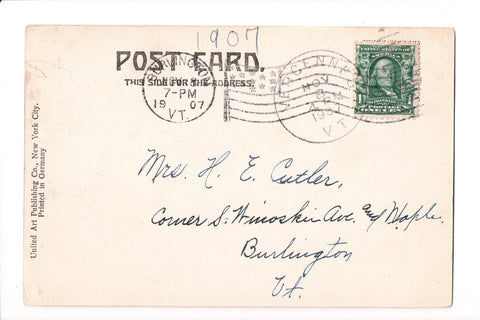 1907
POST CARD.
THIS SIDE FOR THE ADDRESS.
BURLINGTON
NOV
7-PM
19 07
VT.
VERGENNES
NOV
1907
VT.
UNITED STATES OF
1 ONE CENT 1
Mrs. H. E. Cutler,
Corner S. Winoskie Ave. and Maple.
Burlington
Vt.
United Art Publishing Co., New York City.
Printed in Germany